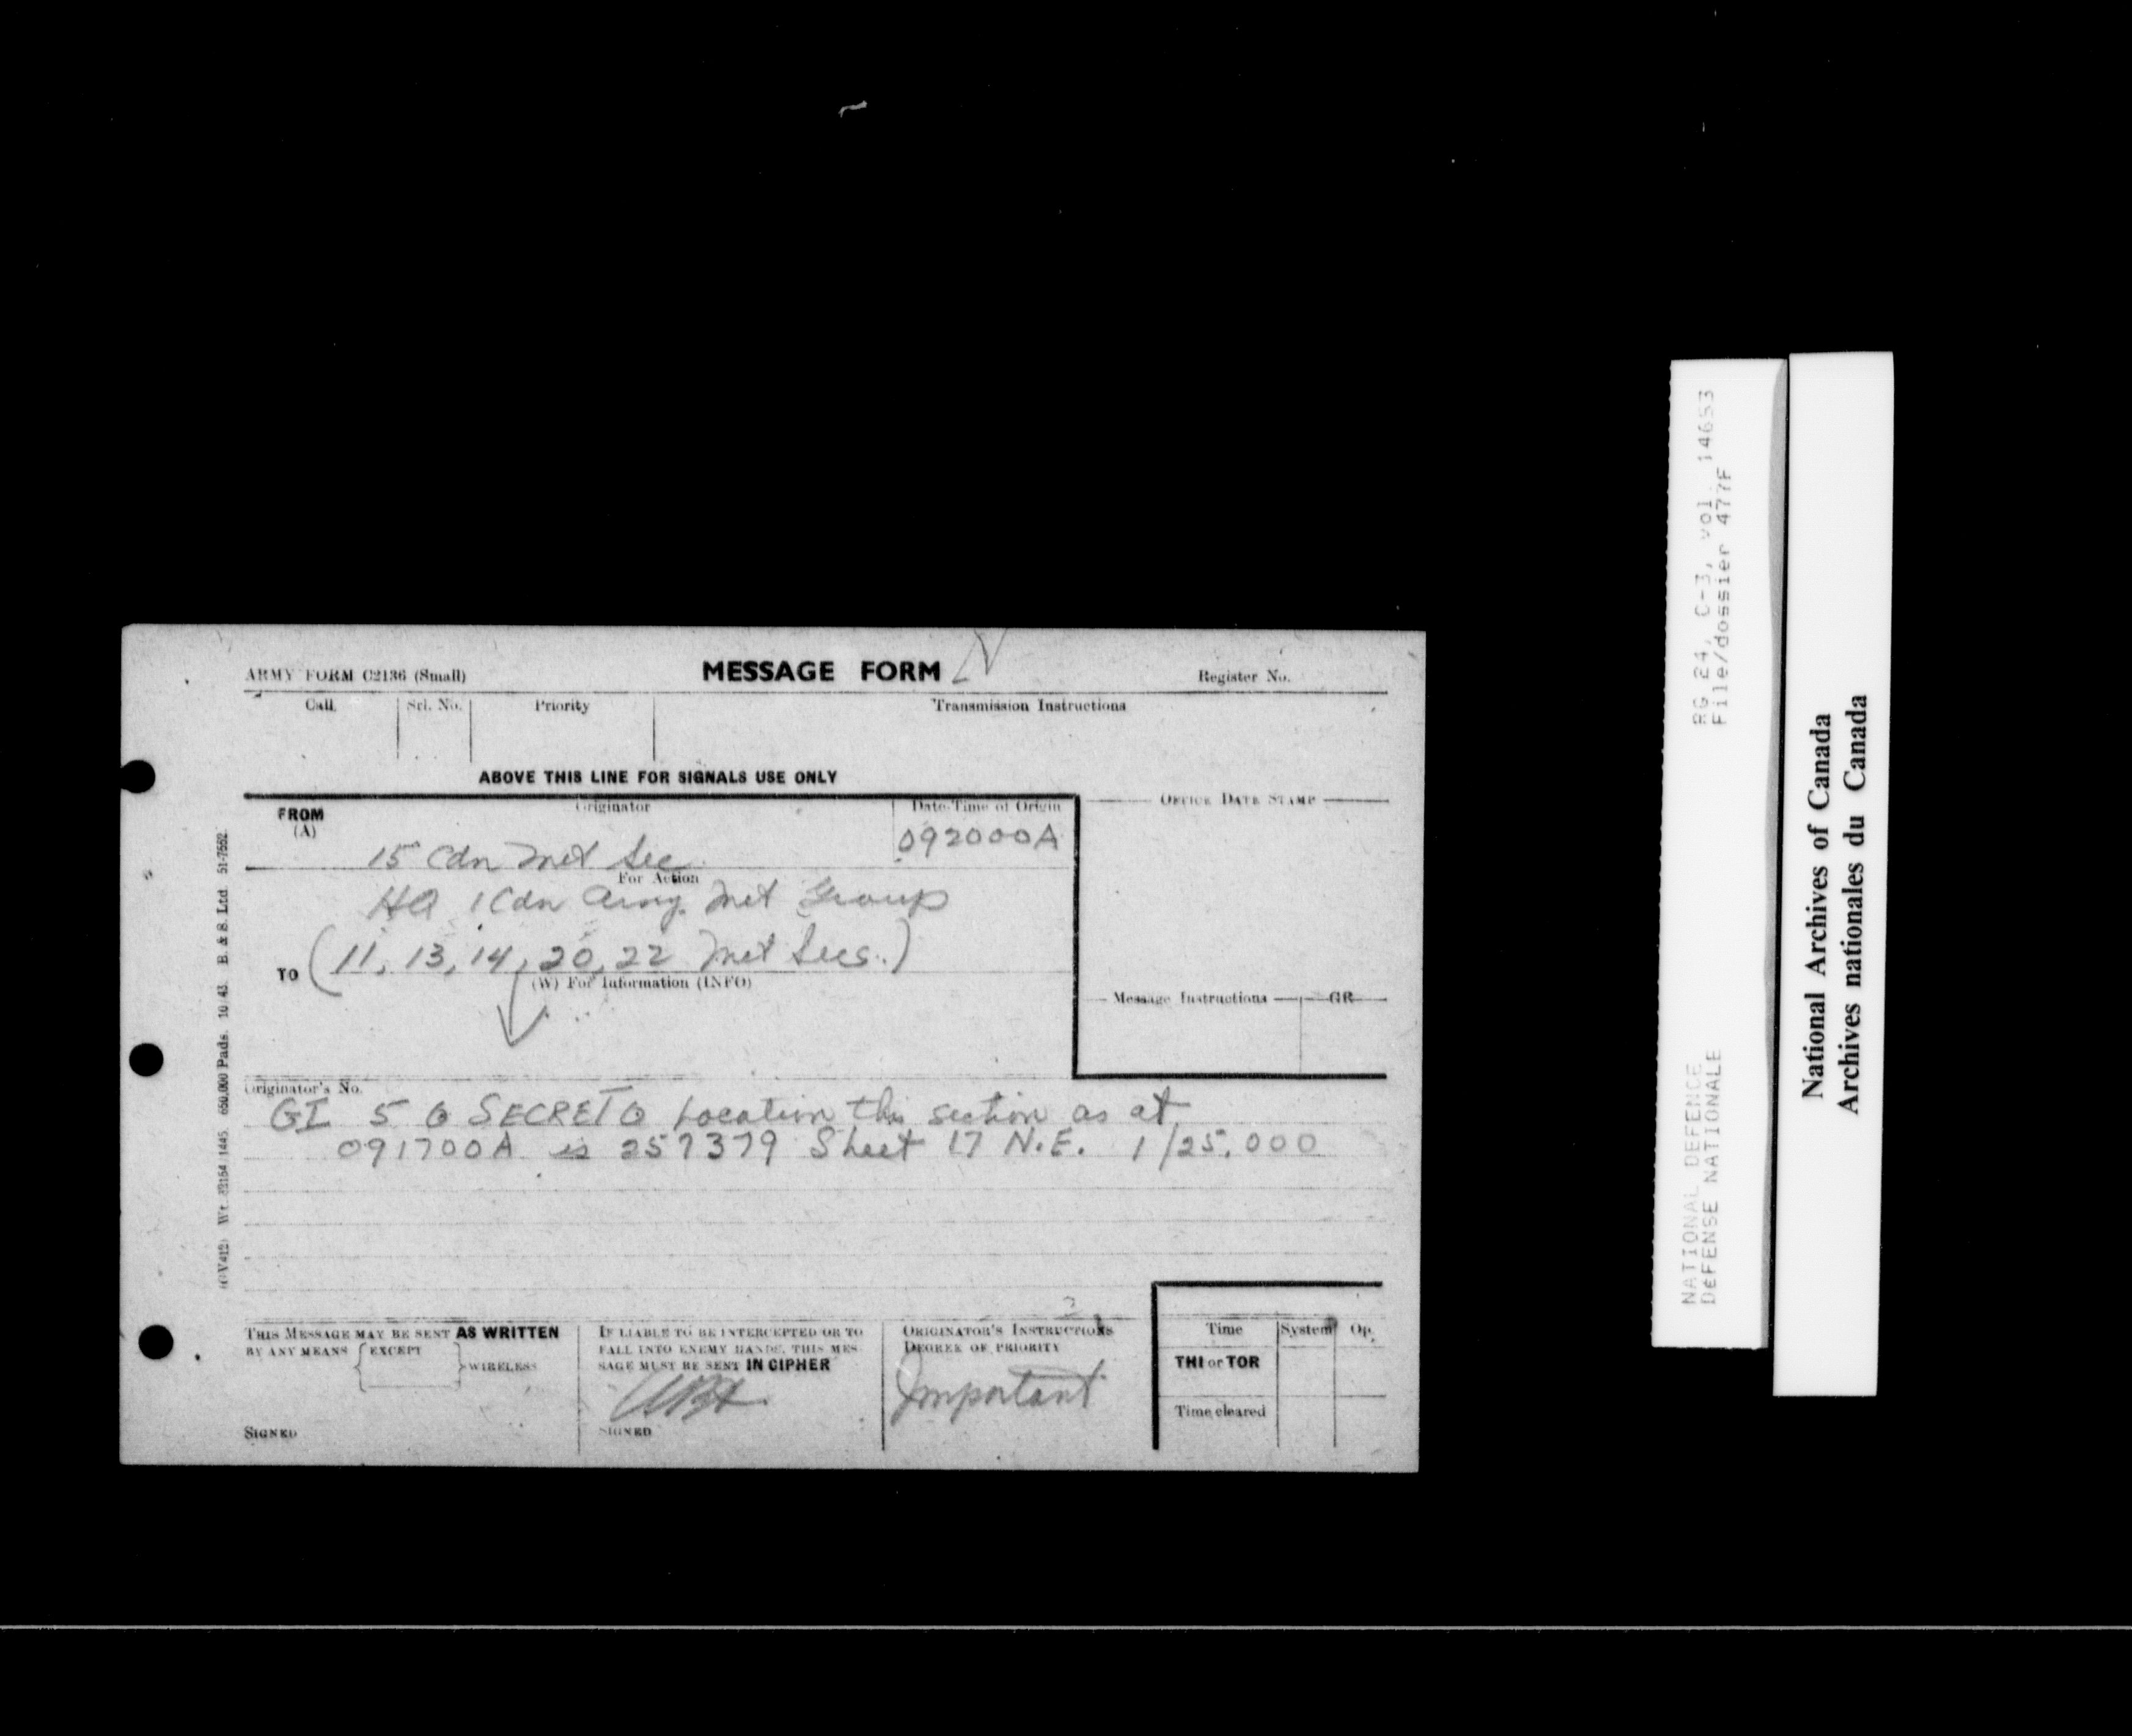 ARMY FORM C2136 (Small)
MESSAGE FORM
Register No.
Call
Srl. No.
Priority
Transmission Instructions
ABOVE THIS LINE FOR SIGNALS USE ONLY
FROM
(A)
Originator
Date-Time of Origin
OFFICE DATE STAMP
15 Cdn Met Sec
092000A
For Action
HQ 1 Cdn Army Met Group
TO
(11, 13, 14, 20, 22 Met Secs.)
(W) For Information (INFO)
Message Instructions
GR
Originator's No.
GI 5 O SECRET O Location this section as at
091700A is 257379 Sheet 17 N.E. 1/25,000
THIS MESSAGE MAY BE SENT AS WRITTEN
BY ANY MEANS
EXCEPT
WIRELESS
SIGNED
IF LIABLE TO BE INTERCEPTED OR TO
FALL INTO ENEMY HANDS, THIS MES-
SAGE MUST BE SENT IN CIPHER
SIGNED
ORIGINATOR'S INSTRUCTIONS
DEGREE OF PRIORITY
Important
Time
System
Op.
THI or TOR
Time cleared
Wt. 32164/1445 650,000 Pads. 10/43. B. & S. Ltd. 51-7552.
NATIONAL DEFENCE
DéFENSE NATIONALE
RG 24, C-3, vol. 14653
File/dossier 477F
National Archives of Canada
Archives nationales du Canada